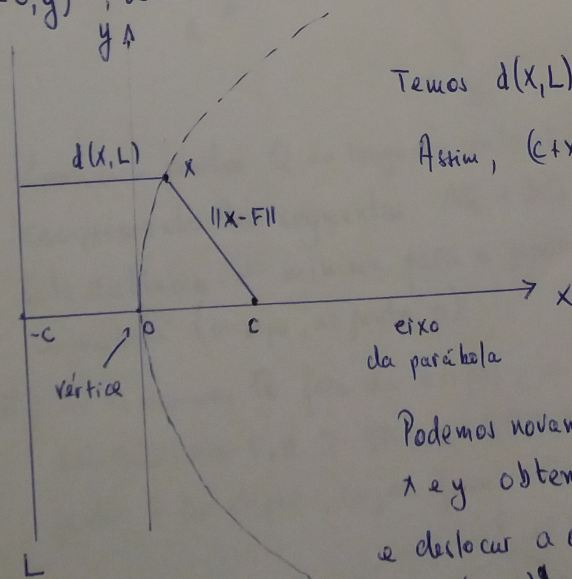 ,y)
y
Temos d(X,L)
d(X,L)
X
Assim, (c+x
||X-F||
-c
0
c
eixo
da parábola
X
vértice
Podemos novam
x e y obten
e deslocar a
L